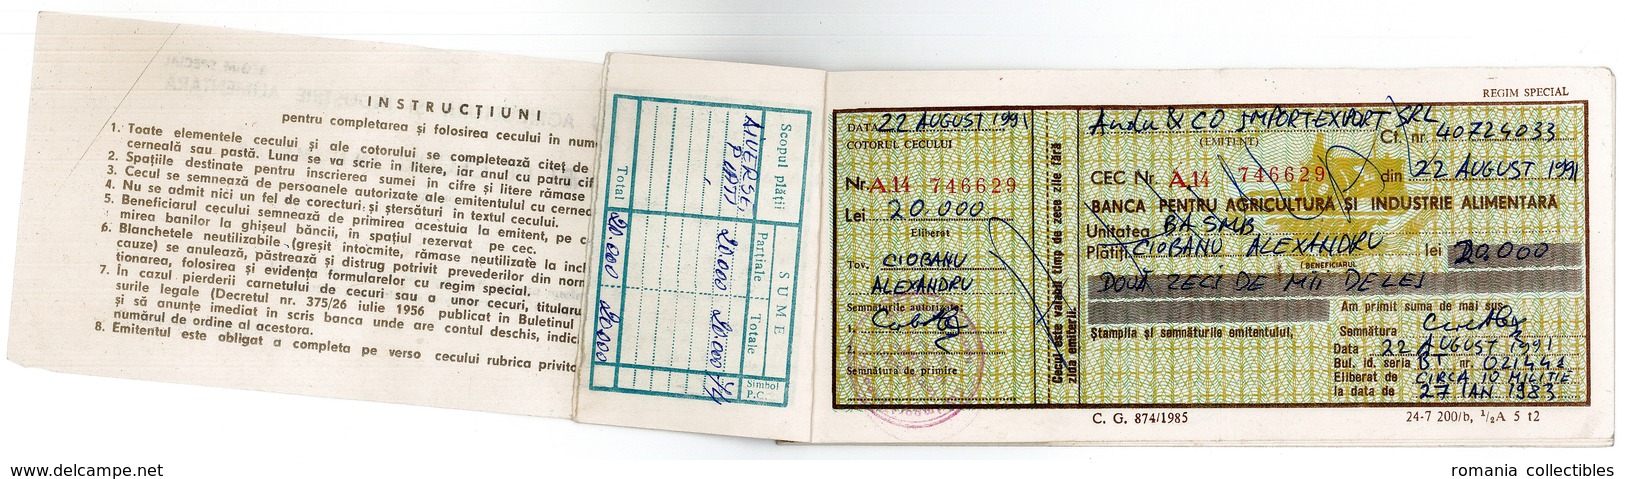 INSTRUCȚIUNI
pentru completarea și folosirea cecului în nume
1. Toate elementele cecului și ale cotorului se completează citeț de
cerneală sau pastă. Luna se va scrie în litere, iar anul cu patru cif
2. Spațiile destinate pentru înscrierea sumei în cifre și litere rămase
3. Cecul se semnează de persoanele autorizate ale emitentului cu cernec
4. Nu se admit nici un fel de corecturi și ștersături în textul cecului.
5. Beneficiarul cecului semnează de primirea acestuia la emitent, pe c
mirea banilor la ghișeul băncii, în spațiul rezervat pe cec.
6. Blanchetele neutilizabile (greșit întocmite, rămase neutilizate la incl
cauze) se anulează, păstrează și distrug potrivit prevederilor din norn
ționarea, folosirea și evidența formularelor cu regim special.
7. În cazul pierderii carnetului de cecuri sau a unor cecuri, titularu
surile legale (Decretul nr. 375/26 iulie 1956 publicat în Buletinul
și să anunțe imediat în scris banca unde are contul deschis, indic
numărul de ordine al acestora.
8. Emitentul este obligat a completa pe verso cecului rubrica privito
Scopul plății
SUME
Parțiale
Totale
Simbol
P.C.
DIVERSE
PARTI
20.000
20.000
Total
20.000
20.000
REGIM SPECIAL
DATA 22 AUGUST 1991
COTORUL CECULUI
Nr. A.14 746629
Lei 20.000
Eliberat
Tov. CIOBANU
ALEXANDRU
Semnăturile autorizate:
1.
2.
Semnătura de primire
Cecul este valabil timp de zece zile fără
ziua emiterii:
Andu & CO IMPORTEXPORT SRL
(EMITENT)
Ct. nr. 40724033
CEC Nr A.14 746629 din 22 AUGUST 1991
BANCA PENTRU AGRICULTURĂ ȘI INDUSTRIE ALIMENTARĂ
Unitatea BA SMB
Plătiți CIOBANU ALEXANDRU lei 20.000
(BENEFICIARUL
DOUĂ ZECI DE MII DE LEI
Am primit suma de mai sus
Ștampila și semnăturile emitentului,
Semnătura
Data 22 AUGUST 1991
Bul. id. seria BT nr. 021442
Eliberat de CIRCA 10 MILITIE
la data de 27 IAN 1983
C. G. 874/1985
24-7 200/b, 1/2A 5 t2
www.delcampe.net
romania collectibles